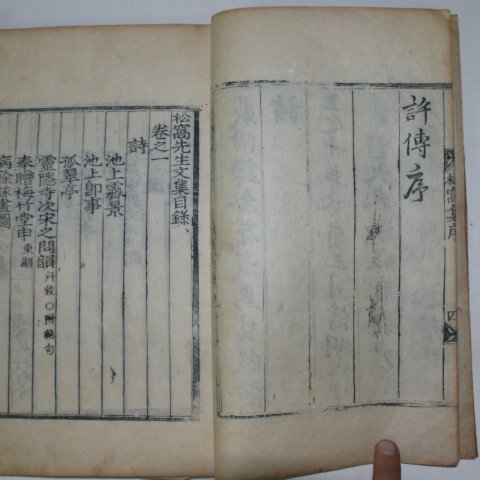 許傳序
松窩集序
四
松窩先生文集目錄
卷之一
詩
池上露景
池上卽事
孤翠亭
靈隱寺次宋之問韻 幷敘○附絕句
奉贈梅竹堂申 東顯